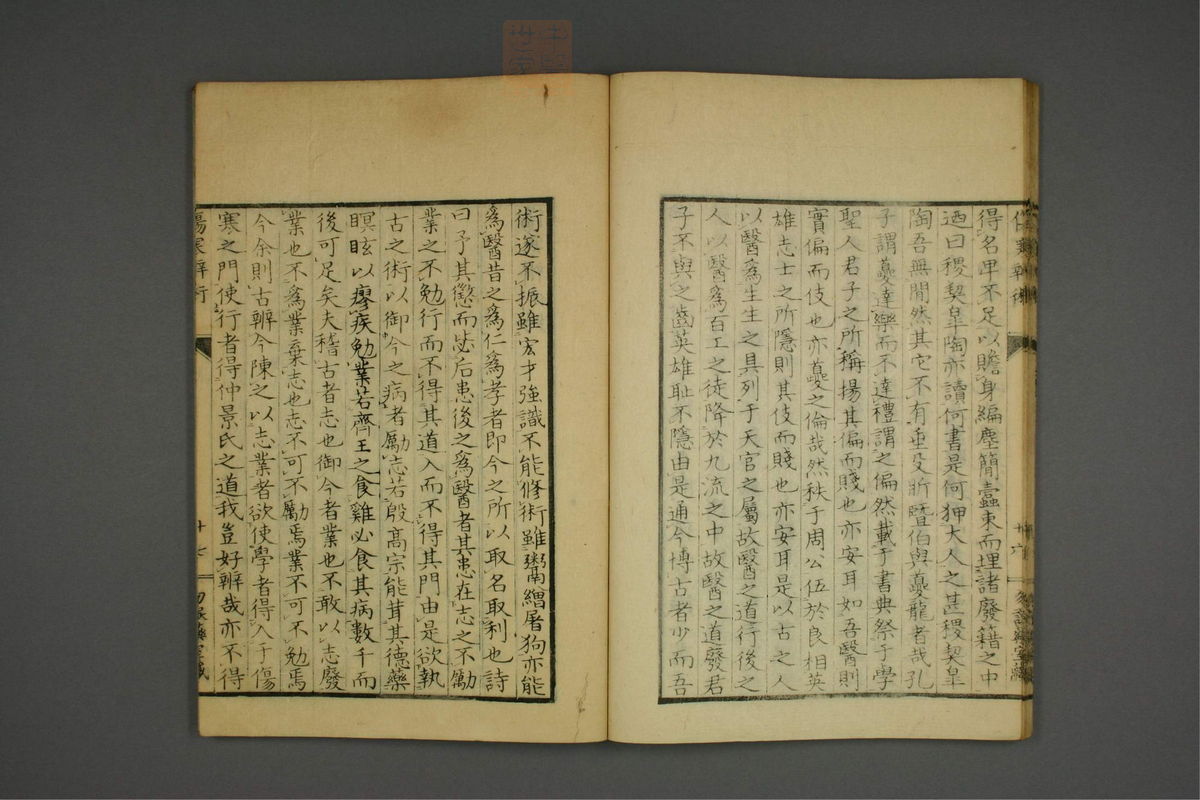 得名卑不足以贍身編塵簡蠹束而埋諸廢籍之中
迺曰稷契皐陶亦讀何書是何狎大人之甚稷契皐
陶吾無間然其它不有垂殳斨曁伯與夔龍者哉孔
子謂夔達樂而不達禮謂之偏然載于書典祭于學
聖人君子之所稱揚其偏而賤也亦安耳如吾醫則
實偏而伎也亦夔之倫哉然秩于周公伍於良相英
雄志士之所隱則其伎而賤也亦安耳是以古之人
以醫爲生生之具列于天官之屬故醫之道行後之
人以醫爲百工之徒降於九流之中故醫之道廢君
子不與之齒英雄耻不隱由是通今博古者少而吾
術遂不振雖宏才強識不能修術雖鬻繒屠狗亦能
爲醫昔之爲仁爲孝者即今之所以取名取利也詩
曰予其懲而毖后患後之爲醫者其患在志之不勵
業之不勉行而不得其道入而不得其門由是欲執
古之術以御今之病者勵志若殷高宗能茸其德藥
瞑眩以瘳疾勉業若齊王之食雞必食其病數千而
後可足矣夫稽古者志也御今者業也不敢以志廢
業也不爲業棄志也志不可不勵焉業不可不勉焉
今余則古辨今陳之以志業者欲使學者得入于傷
寒之門使行者得仲景氏之道我豈好辨哉亦不得
傷寒辨術
十七